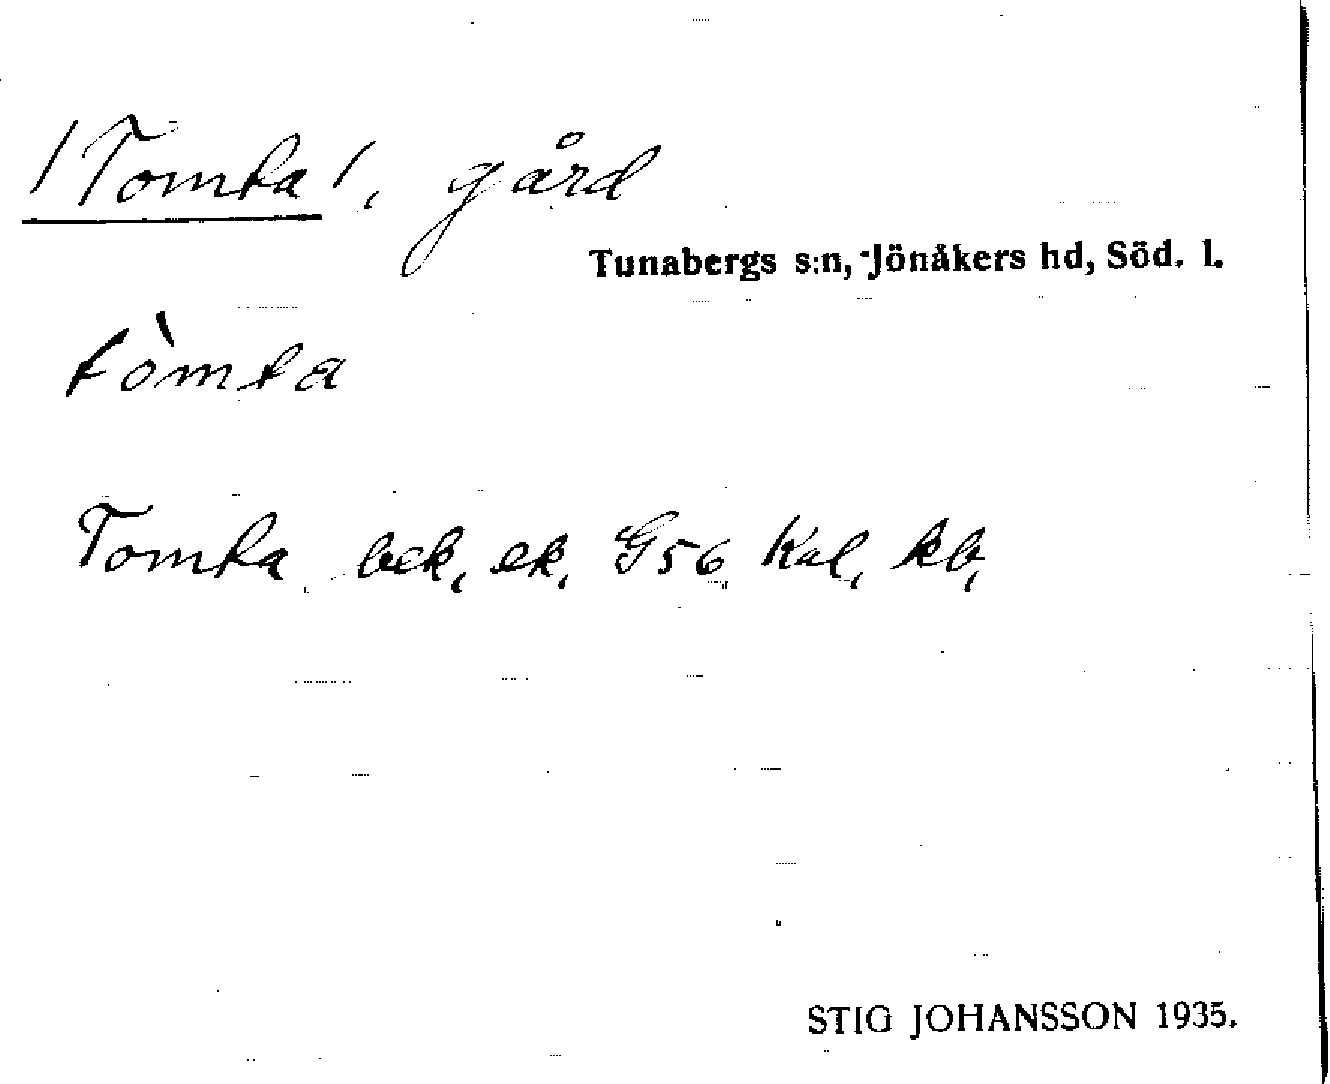 /Tomta/, gård
Tunabergs s:n, Jönåkers hd, Söd. l.
tòmta
Tomta bek, ek, G56 Kal, kb,
STIG JOHANSSON 1935.